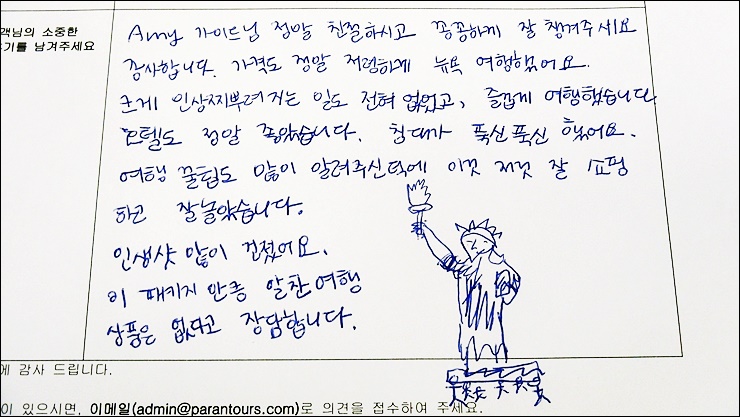 객님의 소중한
기를 남겨주세요
Amy 가이드님 정말 친절하시고 꼼꼼하게 잘 챙겨주세요
감사합니다. 가격도 정말 저렴하게 뉴욕 여행했어요.
크게 인상찌뿌려지는 일도 전혀 없었고, 즐겁게 여행했습니다
호텔도 정말 좋았습니다. 침대가 푹신푹신 했어요.
여행 꿀팁도 많이 알려주신덕에 이것 저것 잘 쇼핑
하고 잘놀았습니다.
인생샷 많이 건졌어요.
이 패키지 만큼 알찬 여행
상품은 없다고 장담합니다.
에 감사 드립니다.
이 있으시면, 이메일(admin@parantours.com)로 의견을 접수하여 주세요.